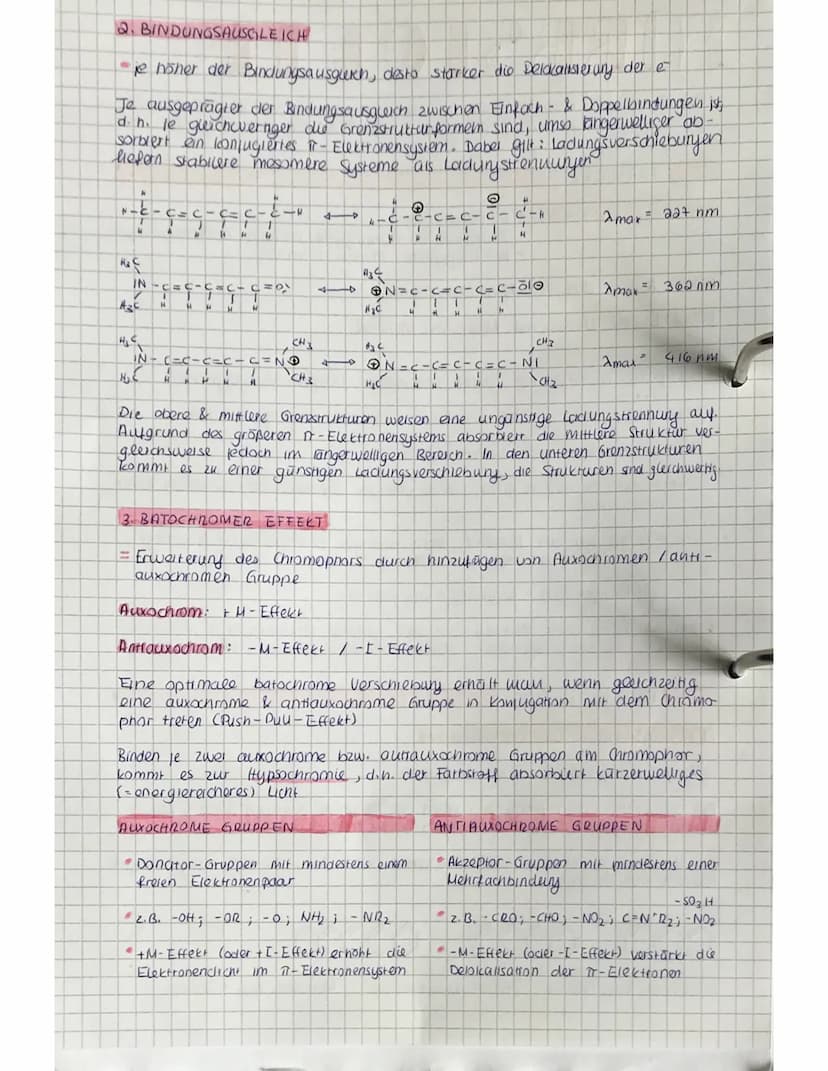 2. BINDUNGSAUSGLEICH
• je höher der Bindungsausgleich, desto stärker die Delokalisierung der e⁻
Je ausgeprägter der Bindungsausgleich zwischen Einfach- & Doppelbindungen ist,
d.h. je gleichwertiger die Grenzstrukturformeln sind, umso längerwelliger ab-
sorbiert ein konjugiertes π-Elektronensystem. Dabei gilt: Ladungsverschiebungen
liefern stabilere mesomere Systeme als Ladungstrennungen
H-C-C=C-C=C-C-H ↔ H-C-C⊕-C=C-C⊖-C-H λmax = 227 nm
H₃C H₃C IN-C=C-C=C-C=O ↔ H₃C H₃C ⊕N=C-C=C-C=C-O⊖ λmax = 362 nm
H₃C H₃C IN-C=C-C=C-C=N⊕ CH₃ CH₃ ↔ H₃C H₃C ⊕N=C-C=C-C=C-NI CH₃ CH₃ λmax = 416 nm
Die obere & mittlere Grenzstrukturen weisen eine ungünstige Ladungstrennung auf.
Aufgrund des größeren π-Elektronensystems absorbiert die mittlere Struktur ver-
gleichsweise jedoch im längerwelligen Bereich. In den unteren Grenzstrukturen
kommt es zu einer günstigen Ladungsverschiebung, die Strukturen sind gleichwertig
3. BATOCHROMER EFFEKT
= Erweiterung des Chromophors durch hinzufügen von Auxochromen / anti-
auxochromen Gruppe
Auxochrom: +M-Effekt
Antiauxochrom: -M-Effekt / -I-Effekt
Eine optimale batochrome Verschiebung erhält man, wenn gleichzeitig
eine auxochrome & antiauxochrome Gruppe in Konjugation mit dem Chromo-
phor treten (Push-Pull-Effekt)
Binden je zwei auxochrome bzw. antiauxochrome Gruppen am Chromophor,
kommt es zur Hypsochromie, d.h. der Farbstoff absorbiert kürzerwelliges
(=energiereicheres) Licht
AUXOCHROME GRUPPEN
• Donator-Gruppen mit mindestens einem
freien Elektronenpaar
• z.B. -OH; -OR; -O; NH₂; -NR₂
• +M-Effekt (oder +I-Effekt) erhöht die
Elektronendichte im π-Elektronensystem
ANTIAUXOCHROME GRUPPEN
• Akzeptor-Gruppen mit mindestens einer
Mehrfachbindung
-SO₃H
• z.B. -CRO; -CHO; -NO₂; C=N⁺R₂; -NO₂
• -M-Effekt (oder -I-Effekt) verstärkt die
Delokalisation der π-Elektronen